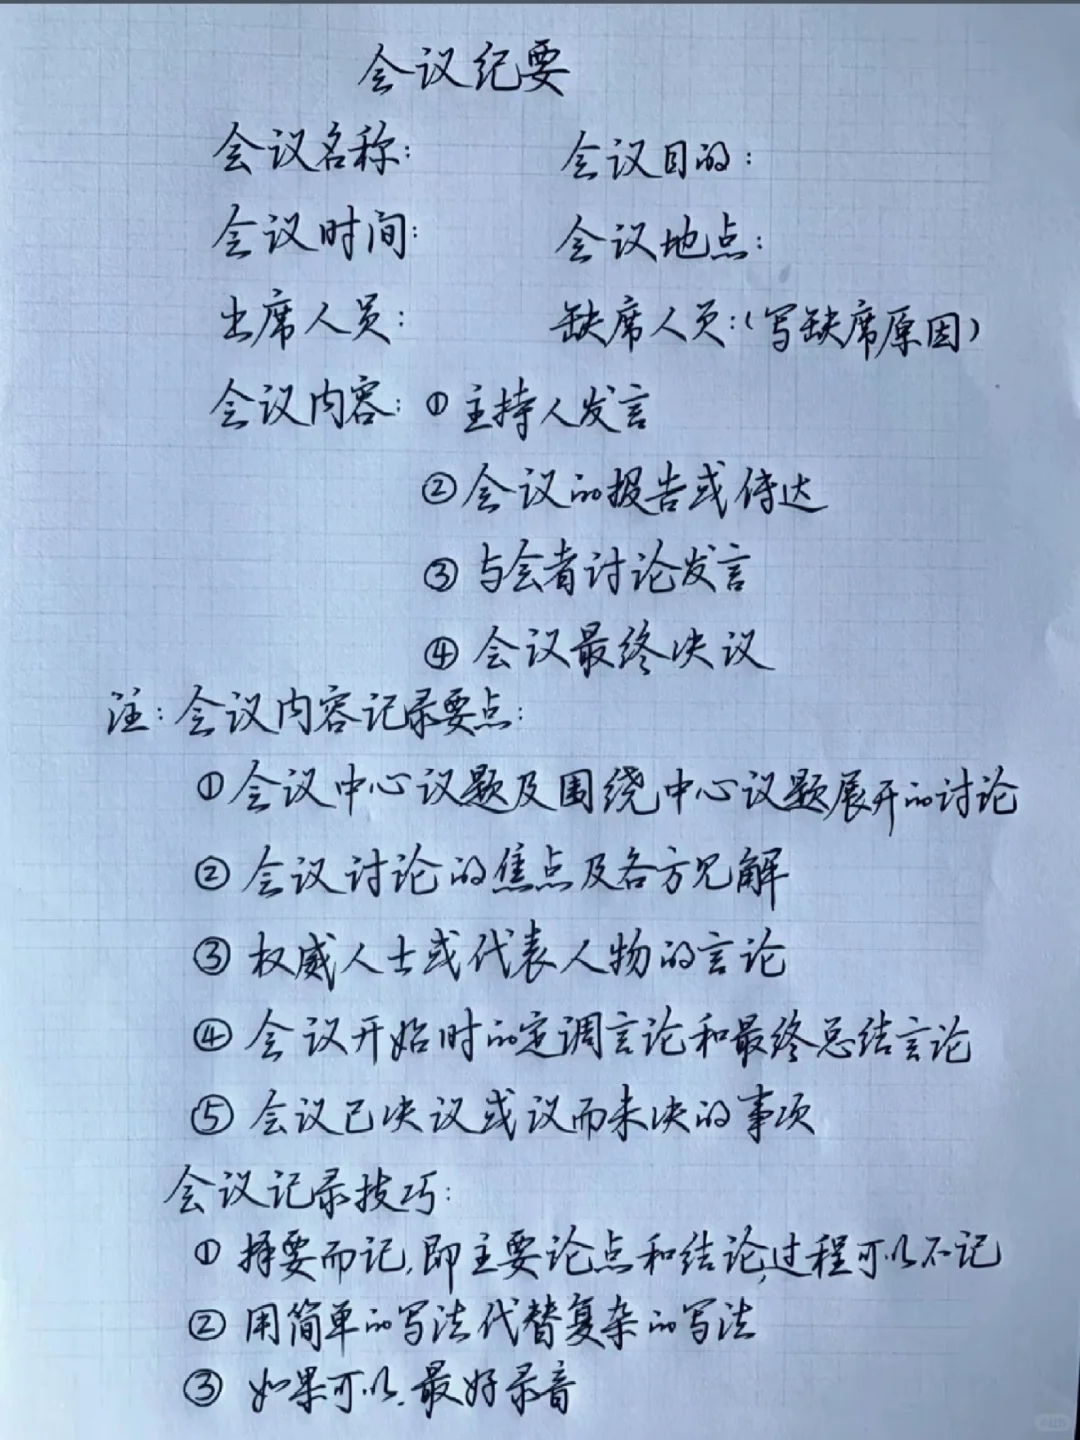 会议纪要
会议名称: 会议目的:
会议时间: 会议地点:
出席人员: 缺席人员:(写缺席原因)
会议内容: ①主持人发言
②会议的报告或传达
③与会者讨论发言
④会议最终决议
注:会议内容记录要点:
①会议中心议题及围绕中心议题展开的讨论
②会议讨论的焦点及各方见解
③权威人士或代表人物的言论
④会议开始时的定调言论和最终总结言论
⑤会议已决议或议而未决的事项
会议记录技巧:
①择要而记,即主要论点和结论,过程可以不记
②用简单的写法代替复杂的写法
③如果可以,最好录音